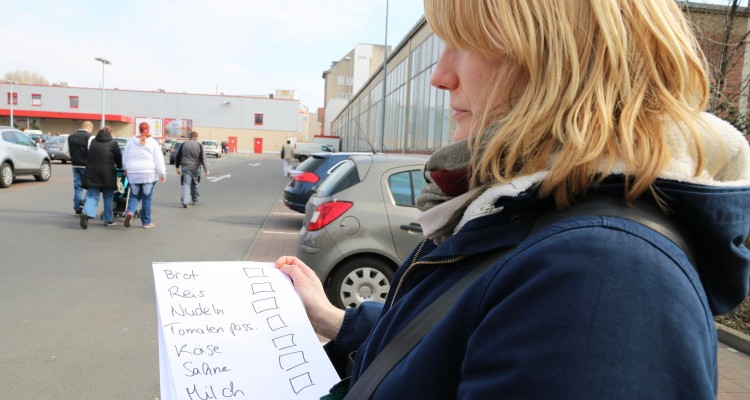 Brot
Reis
Nudeln
Tomaten pass.
Käse
Sahne
Milch